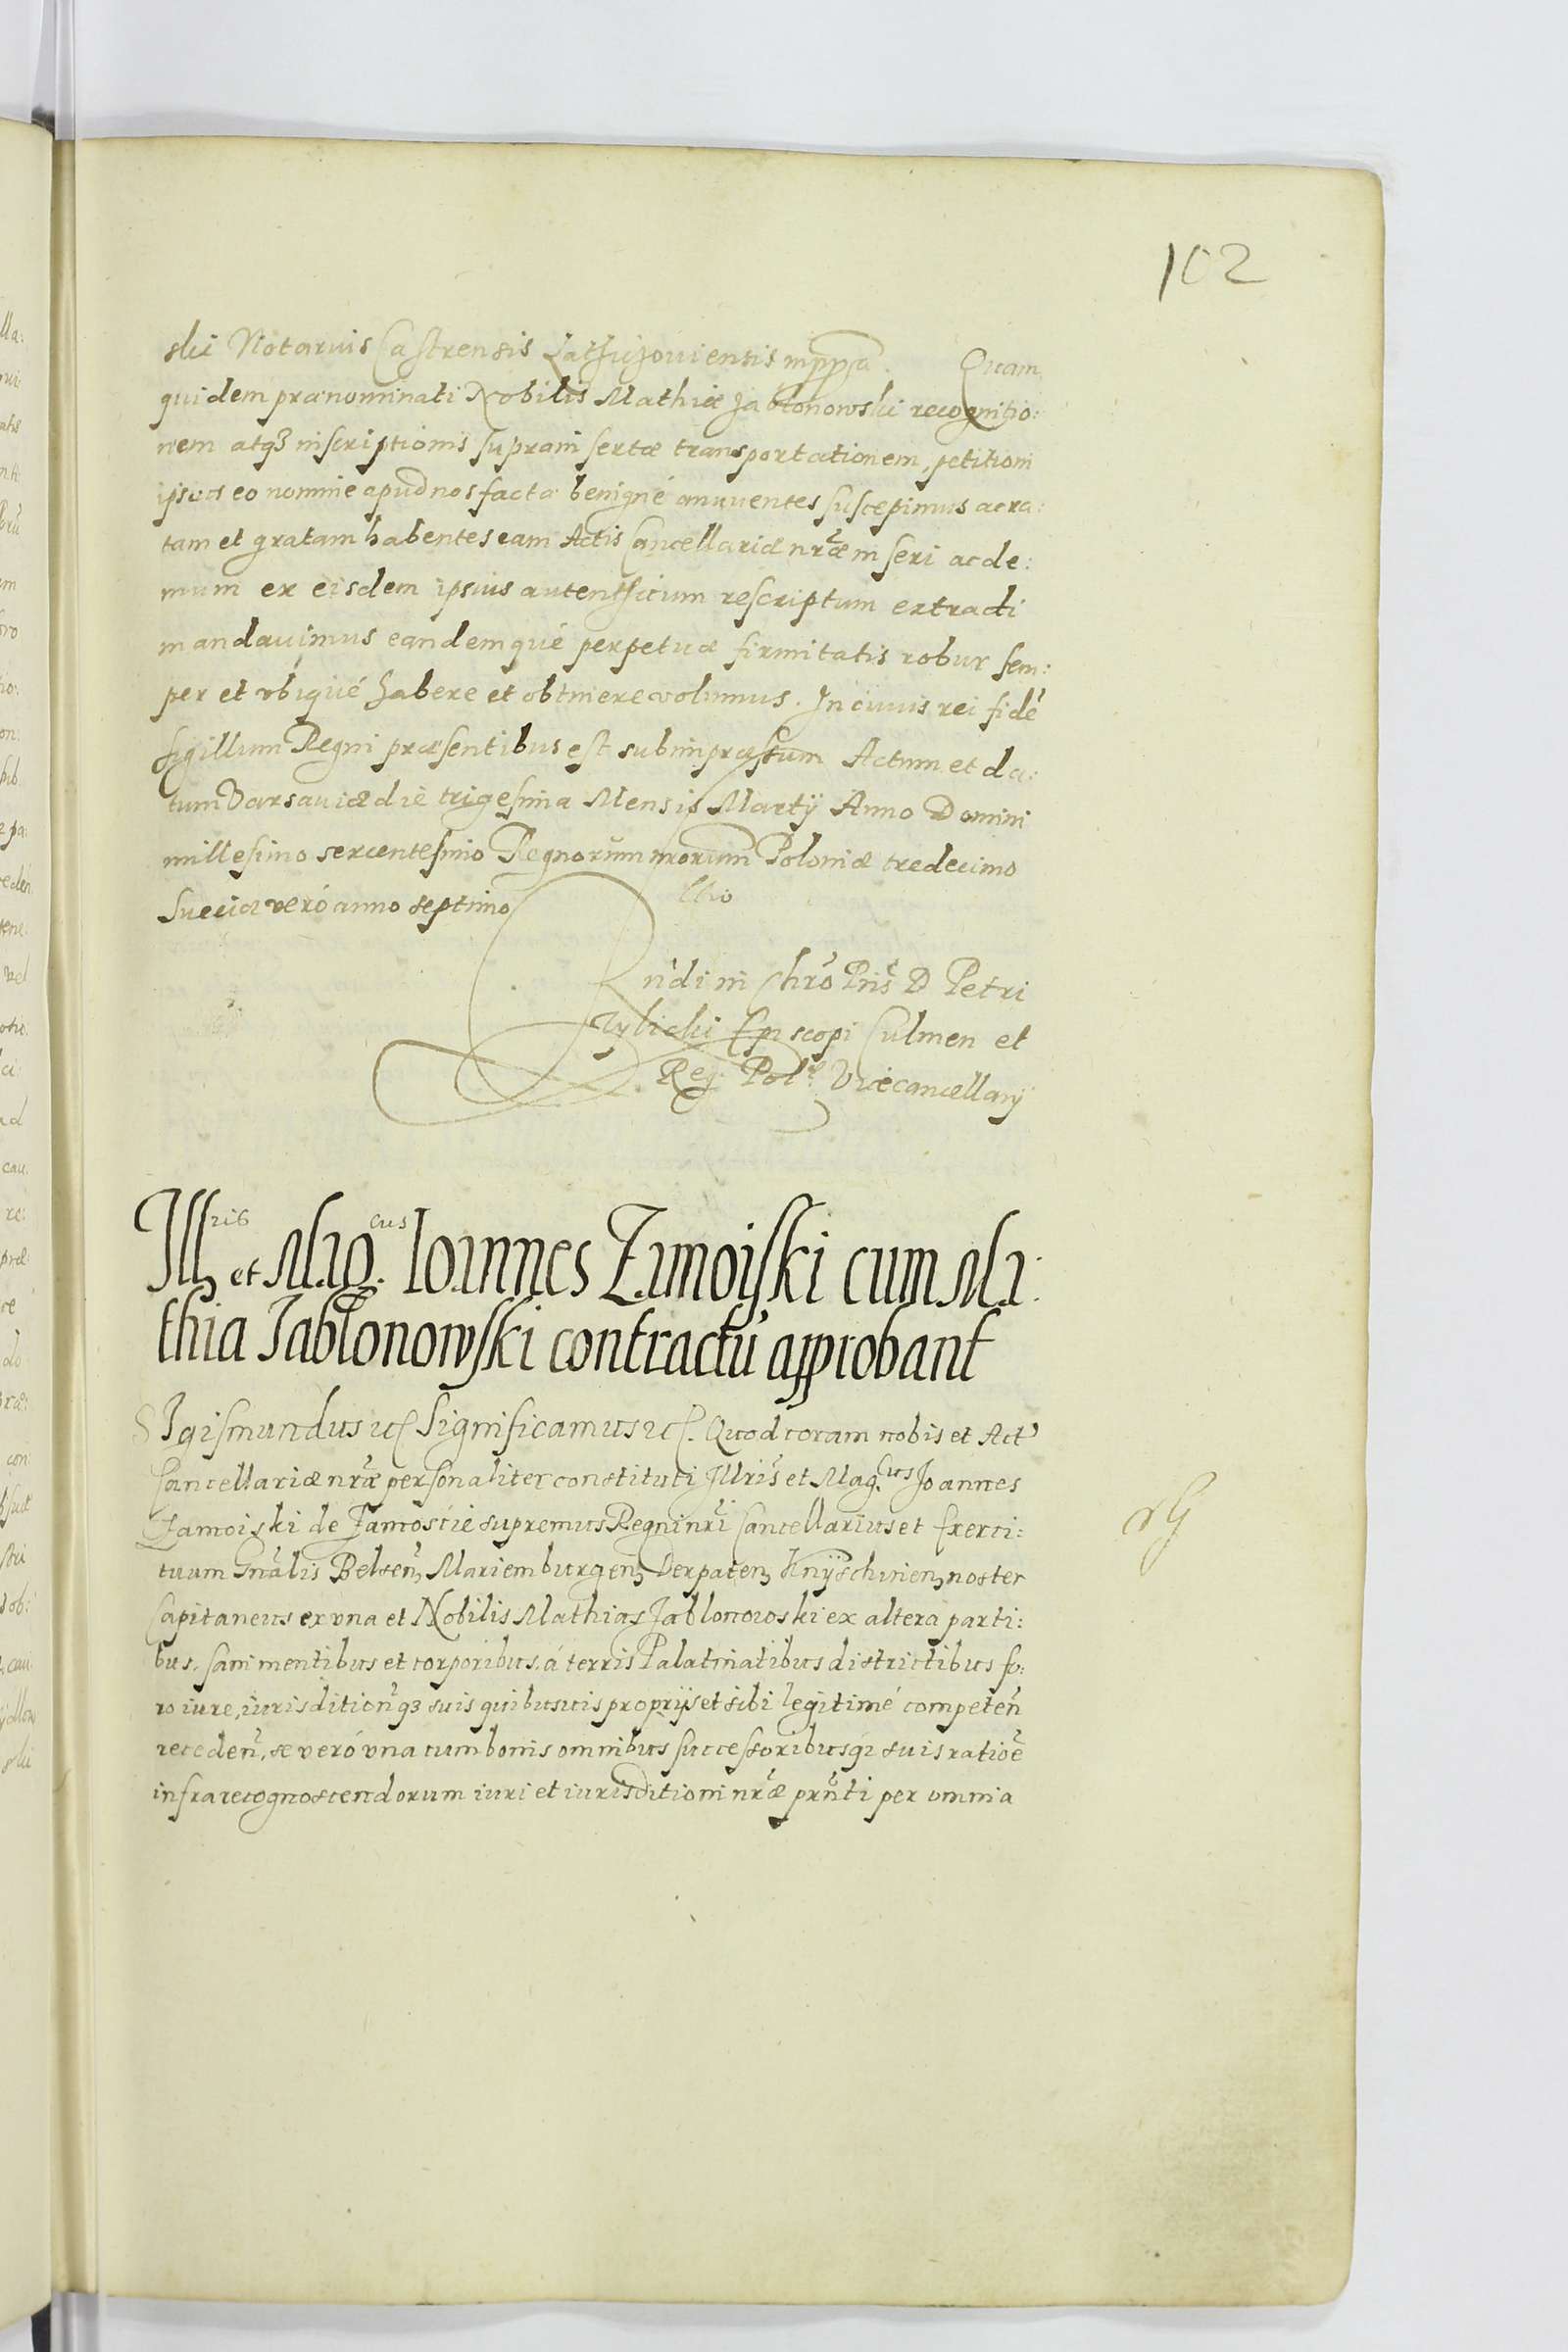 102
ski Notarius Castrensis Latyczoviensis mppia. Quam
quidem prænominati Nobilis Mathiæ Jablonowski recognitio:
nem atqʒ inscriptionis suprainsertæ transportationem, petitioni
ipsius eo nomine apud nos factæ benigné annuentes suscepimus ac ra:
tam et gratam habentes eam Actis Cancellariæ nr̃æ inseri ac de:
mum ex eisdem ipsius autenthicum rescriptum extradi
mandauimus eandemqué perpetuæ firmitatis robur sem:
per et vbiqué habere et obtinere volumus. In cuius rei fidẽ
sigillum Regni præsentibus est subimpressum Actum et da:
tum Varsauiæ die trigesima Mensis Martÿ Anno Domini
millesimo sexcentesimo Regnorum nrorum Poloniæ tredecimo
Sueciæ veró anno septimo
Rñdi in Chrõ Prĩs D Petri
Tylicki Episcopi Culmen et
Reg. Pol. Vicecancellarÿ
Illris et Mag.cus Ioannes Zamoiski cum Ma:
thia Iablonowski contractũ approbant
SIgismundus etc. Significamus etc. Quod coram nobis et Act'
Cancellariæ nr̃æ personaliter constituti Illris̃ et Mag.cus Joannes
Zamoiski de Zamoscie supremus Regni nr̃i Cancellarius et Exerci:
tuum Gnãlis Belseñ, Mariemburgenʒ Derpatenʒ Knÿschinienʒ noster
Capitaneus ex vna et Nobilis Mathias Jablonowski ex altera parti:
bus, sani mentibus et corporibus, á terris Palatinatibus districtibus fo:
ro iure, iurisditionq̃ʒ suis quibusuis proprÿs et sibi legitimé competeñ
recedeñ, se veró vna cum bonis omnibus successoribusqꝫ suis ratioẽ
infra recognoscendorum iuri et iurisditioni nr̃æ prñti per omnia